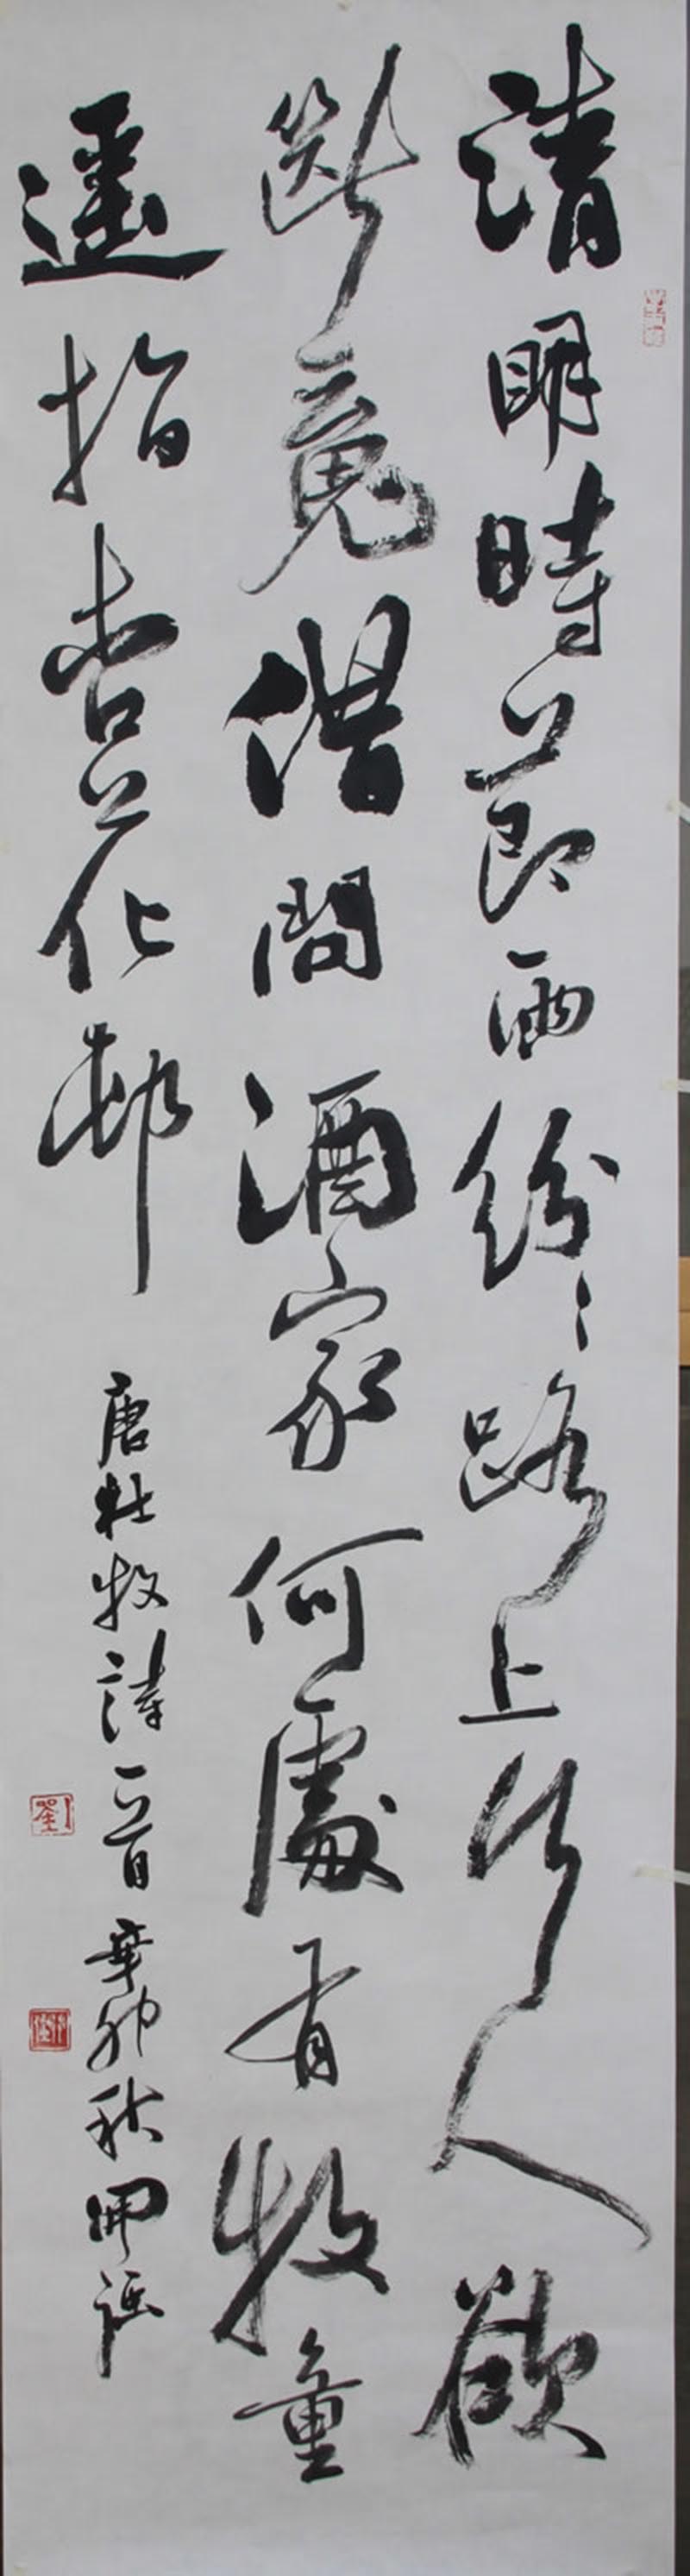 清明時節雨紛〻路上行人欲
斷魂借問酒家何處有牧童
遙指杏花邨
唐杜牧詩一首辛卯秋
劉